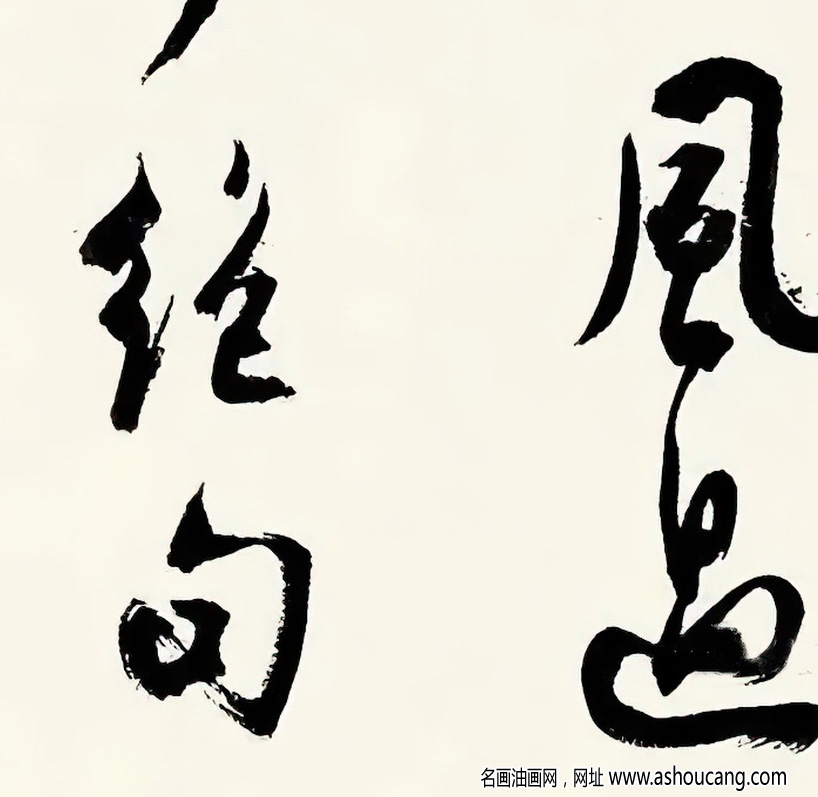 風過
絕句
名画油画网，网址 www.ashoucang.com